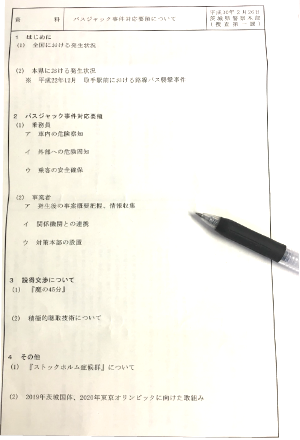 資 料
バスジャック事件対応要領について
平成30年2月26日
茨城県警察本部
(捜査第一課)
1 はじめに
(1) 全国における発生状況
(2) 本県における発生状況
※ 平成22年12月 取手駅前における路線バス襲撃事件
2 バスジャック事件対応要領
(1) 乗務員
ア 車内の危険察知
イ 外部への危険周知
ウ 乗客の安全確保
(2) 事業者
ア 発生後の事案概要把握、情報収集
イ 関係機関との連携
ウ 対策本部の設置
3 説得交渉について
(1) 『魔の45分』
(2) 積極的聴取技術について
4 その他
(1) 『ストックホルム症候群』について
(2) 2019年茨城国体、2020年東京オリンピックに向けた取組み